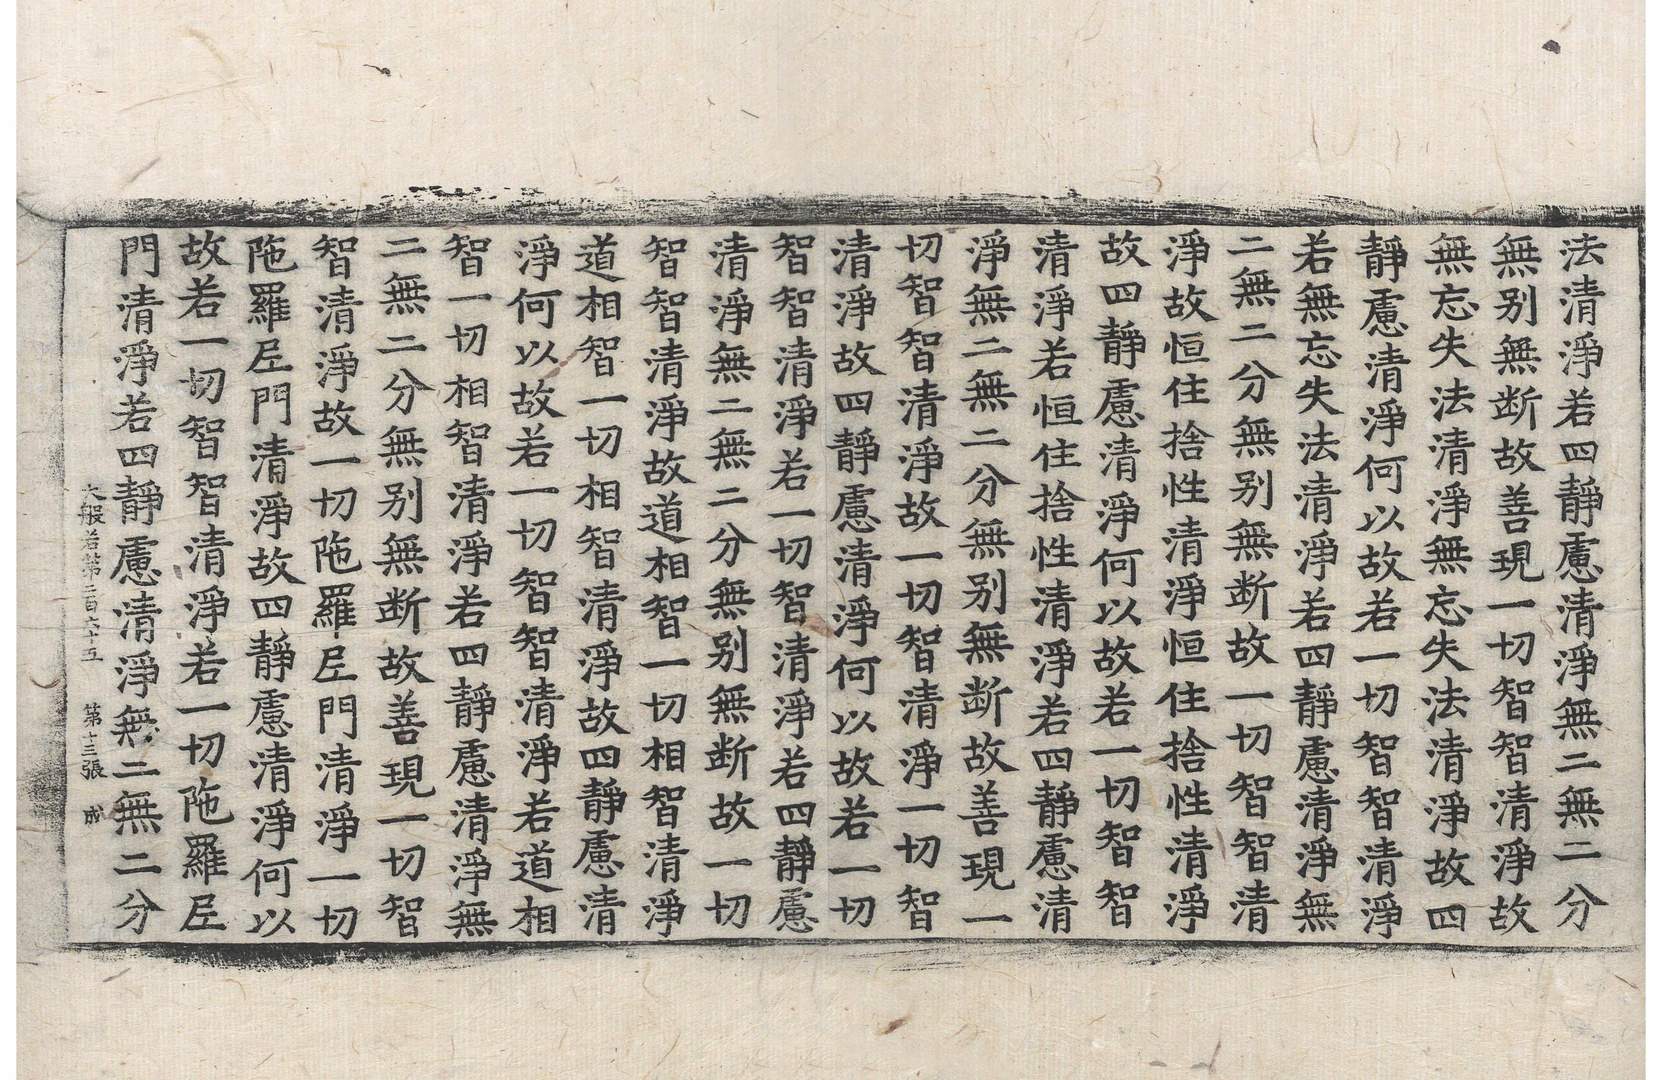 法清淨若四靜慮清淨無二無二分
無别無断故善現一切智智清淨故
無忘失法清淨無忘失法清淨故四
靜慮清淨何以故若一切智智清淨
若無忘失法清淨若四靜慮清淨無
二無二分無别無断故一切智智清
淨故恒住捨性清淨恒住捨性清淨
故四靜慮清淨何以故若一切智智
清淨若恒住捨性清淨若四靜慮清
淨無二無二分無别無断故善現一
切智智清淨故一切智清淨一切智
清淨故四靜慮清淨何以故若一切
智智清淨若一切智清淨若四靜慮
清淨無二無二分無别無断故一切
智智清淨故道相智一切相智清淨
道相智一切相智清淨故四靜慮清
淨何以故若一切智智清淨若道相
智一切相智清淨若四靜慮清淨無
二無二分無别無断故善現一切智
智清淨故一切陁羅尼門清淨一切
陁羅尼門清淨故四靜慮清淨何以
故若一切智智清淨若一切陁羅尼
門清淨若四靜慮清淨無二無二分
大般若第二百六十五 第十三張 成